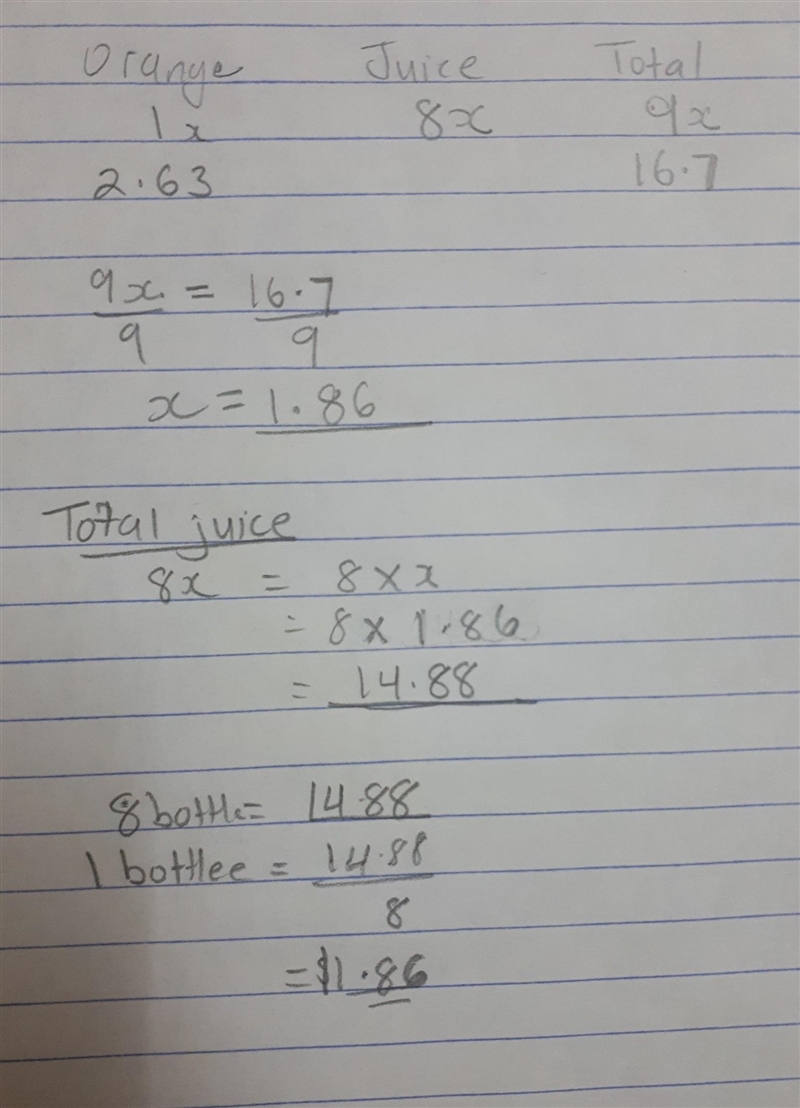 Orange Juice Total
1x 8x 9x
2.63 16.7
9x = 16.7
9 9
x = 1.86
Total juice
8x = 8 × x
= 8 × 1.86
= 14.88
8 bottle = 14.88
1 bottlee = 14.88
8
= $1.86